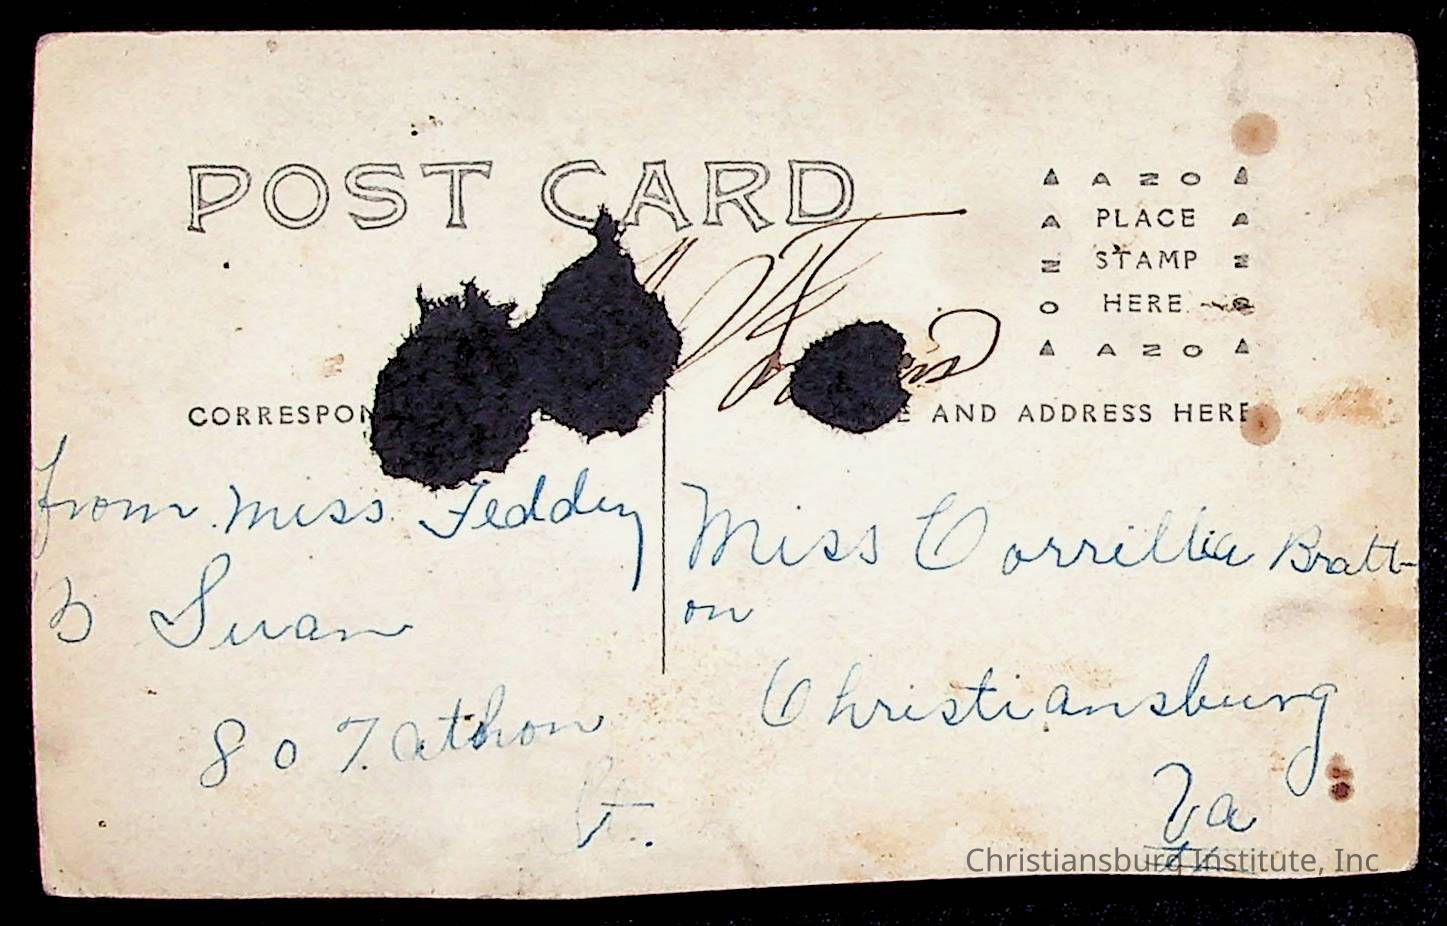 POST CARD
AZO
PLACE
STAMP
HERE
AZO
CORRESPON
E AND ADDRESS HERE
from Miss Feddey
B Swan
807. athon
St.
Miss Corrillia Bratt-
on
Christiansburg
Va
Christiansburg Institute, Inc